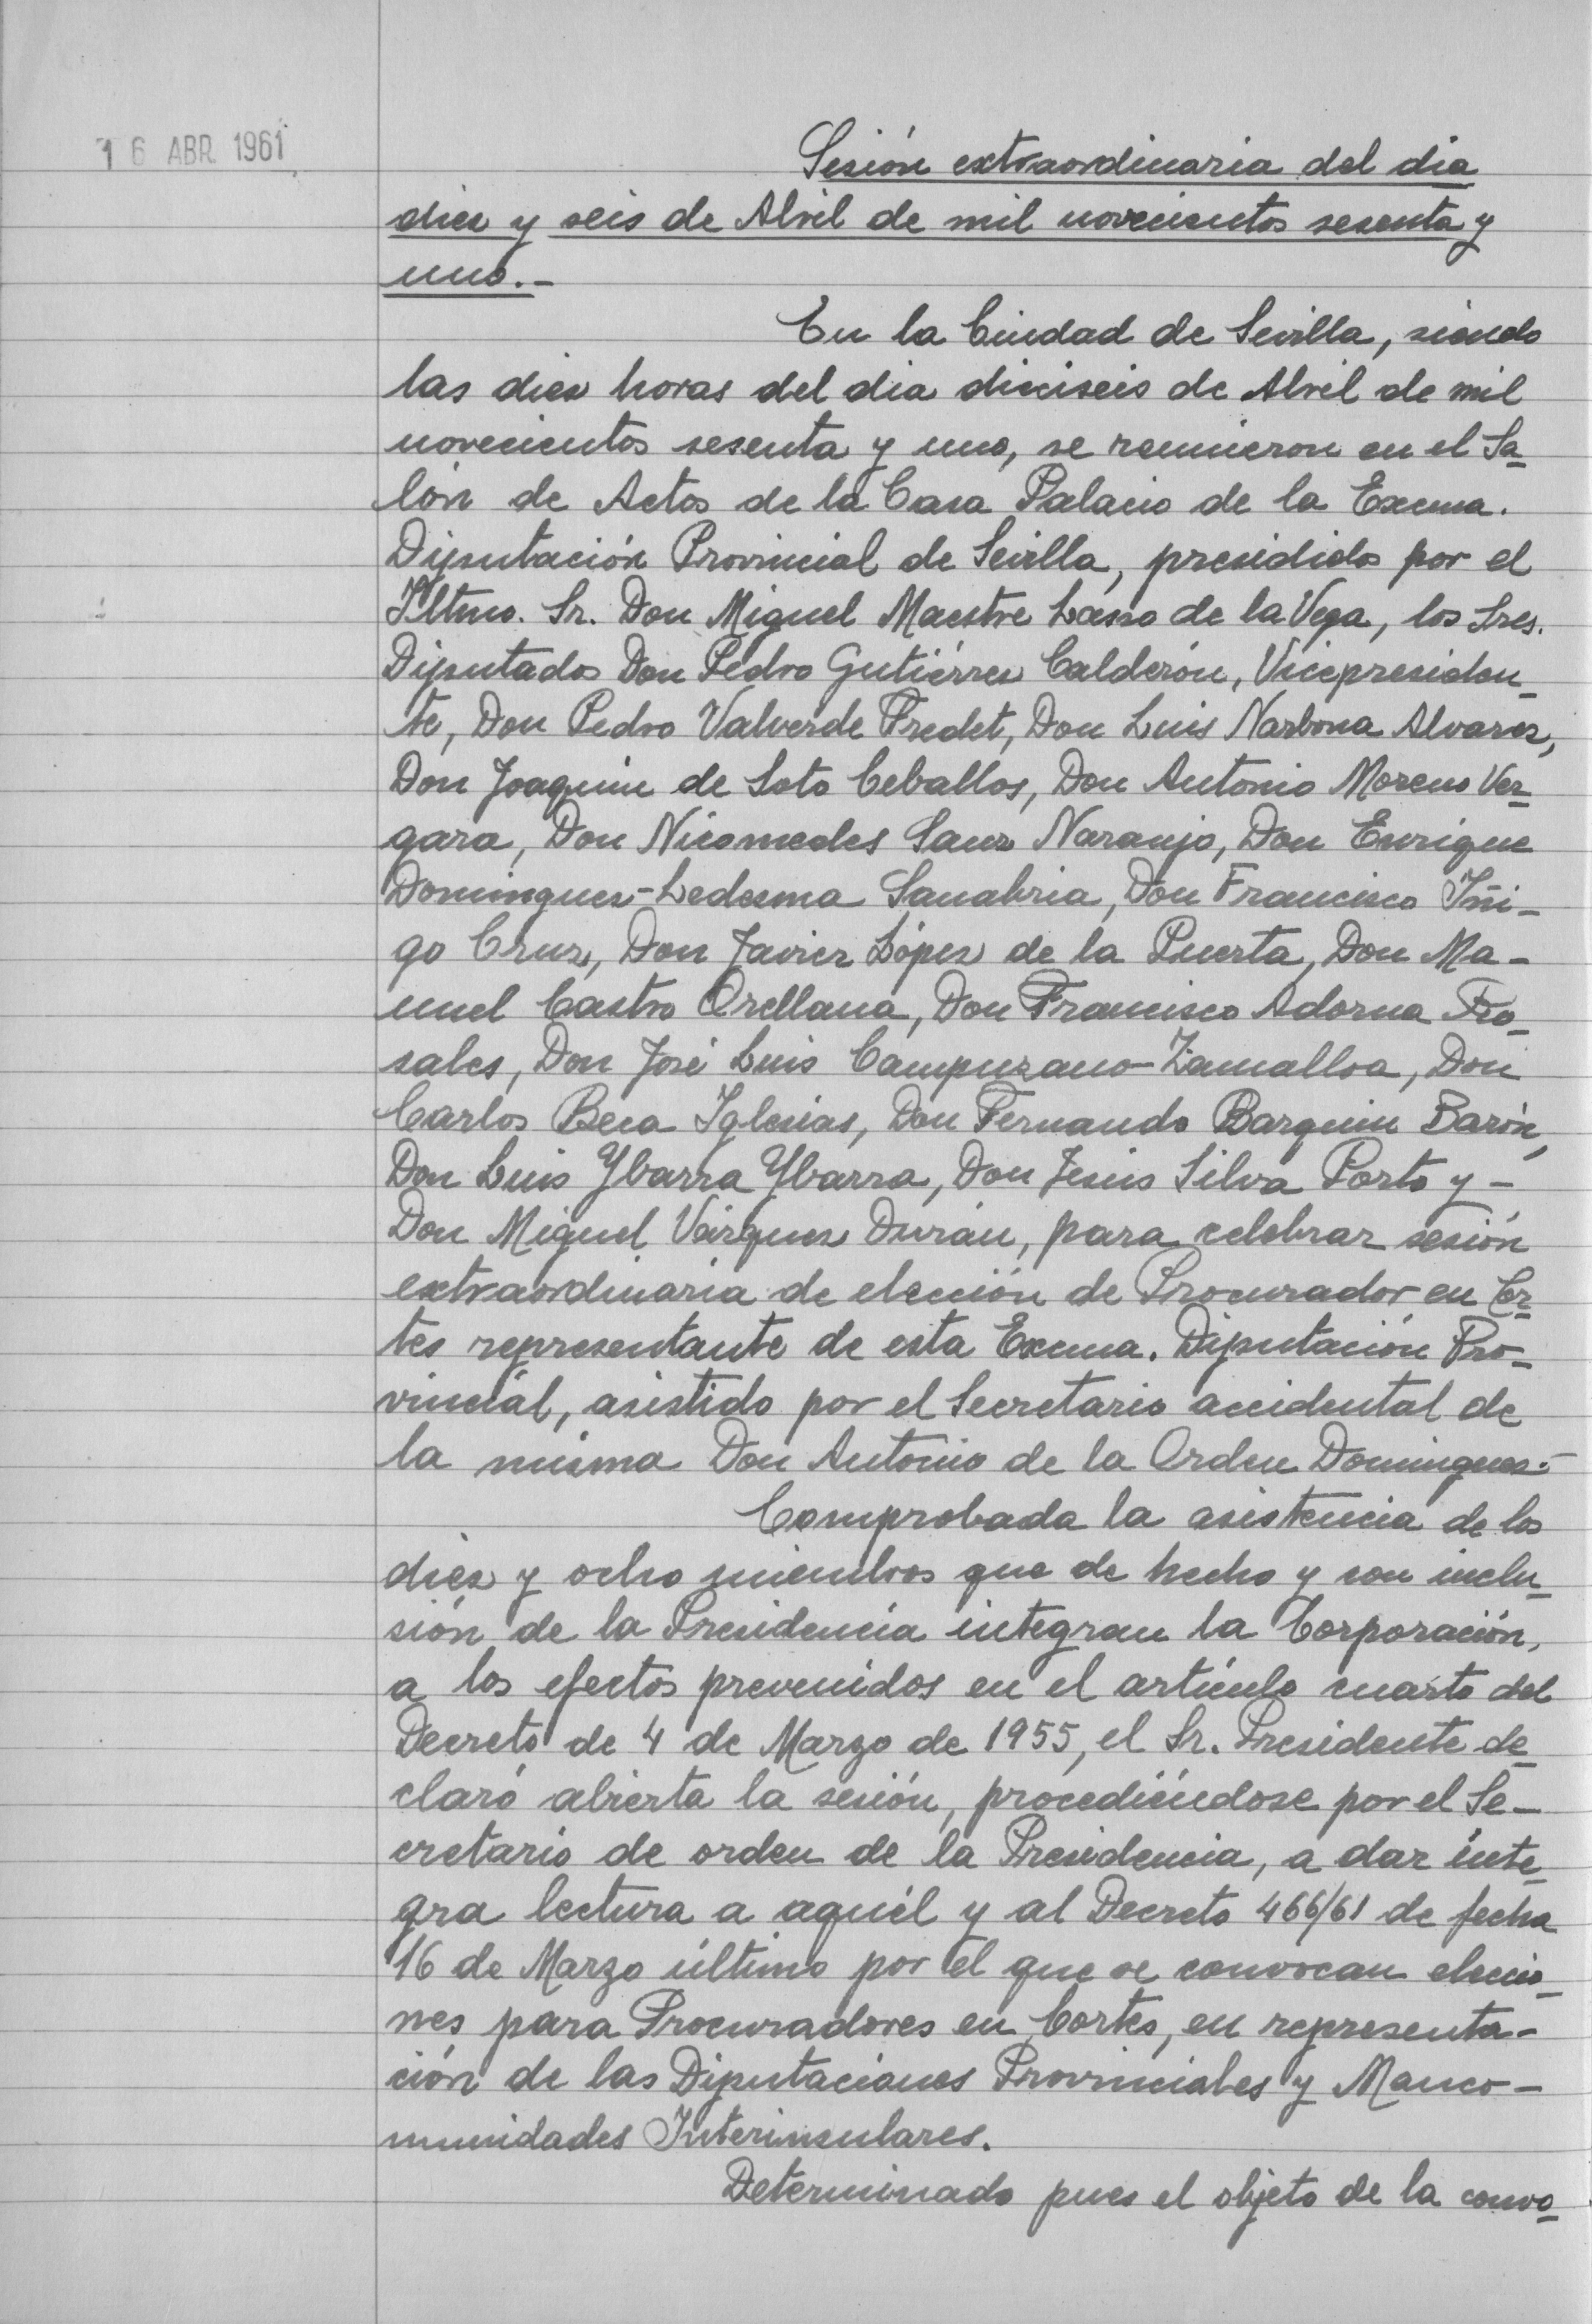 16 ABR 1961
Sesión extraordinaria del dia
diez y seis de Abril de mil novecientos sesenta y
uno.-
En la Ciudad de Sevilla, siendo
las diez horas del dia dieciseis de Abril de mil
novecientos sesenta y uno, se reunieron en el Sa-
lón de Actos de la Casa Palacio de la Excma.
Diputación Provincial de Sevilla, presididos por el
Iltmo. Sr. Don Miguel Maestre Lasso de la Vega, los Sres.
Diputados Don Pedro Gutiérrez Calderón, Vicepresiden-
te, Don Pedro Valverde Fredet, Don Luis Narbona Alvarez,
Don Joaquin de Soto Ceballos, Don Antonio Moreno Ver-
gara, Don Nicomedes Sanz Naranjo, Don Enrique
Dominguez-Ledesma Sanabria, Don Francisco Iñi-
go Cruz, Don Javier López de la Puerta, Don Ma-
nuel Castro Orellana, Don Francisco Adorna Ro-
sales, Don José Luis Campuzano-Zamalloa, Don
Carlos Beca Iglesias, Don Fernando Barquin Barón,
Don Luis Ybarra Ybarra, Don Jesús Silva Porto y -
Don Miguel Vázquez Durán, para celebrar sesión
extraordinaria de elección de Procurador en Cor-
tes representante de esta Excma. Diputación Pro-
vincial, asistido por el Secretario accidental de
la misma Don Antonio de la Orden Dominguez.-
Comprobada la asistencia de los
diez y ocho miembros que de hecho y con inclu-
sión de la Presidencia integran la Corporación,
a los efectos prevenidos en el artículo cuarto del
Decreto de 4 de Marzo de 1955, el Sr. Presidente de-
claró abierta la sesión, procediéndose por el Se-
cretario de orden de la Presidencia, a dar ínte-
gra lectura a aquél y al Decreto 466/61 de fecha
16 de Marzo último por el que se convocan eleccio-
nes para Procuradores en Cortes, en representa-
ción de las Diputaciones Provinciales y Manco-
munidades Interinsulares.
Determinado pues el objeto de la convo-